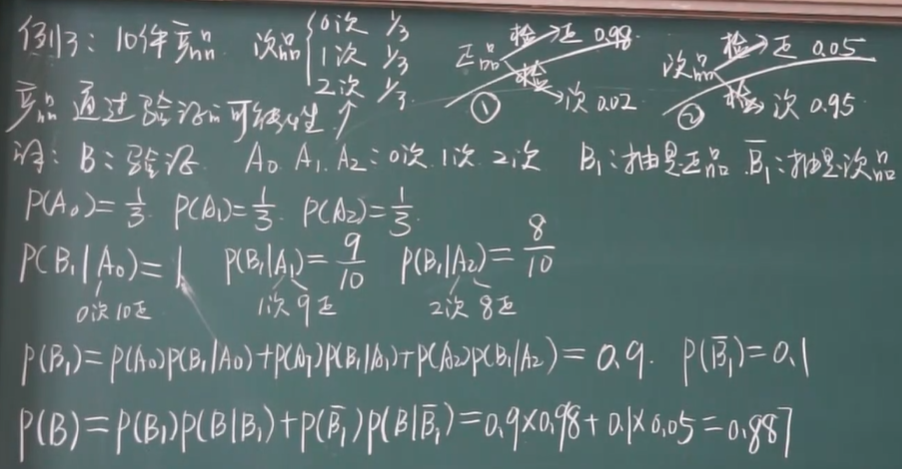 例13: 10件产品 次品{0次 1/3
1次 1/3
2次 1/3
正品 检→正 0.98
检→次 0.02
①
次品 检→正 0.05
检→次 0.95
②
产品通过验收的可能性↑
设: B: 验收 A₀ A₁ A₂: 0次 1次 2次 B₁: 抽是正品 B̅₁: 抽是次品
P(A₀)=1/3 P(A₁)=1/3 P(A₂)=1/3
P(B₁|A₀)=1 P(B₁|A₁)=9/10 P(B₁|A₂)=8/10
0次10正 1次9正 2次8正
P(B₁)=P(A₀)P(B₁|A₀)+P(A₁)P(B₁|A₁)+P(A₂)P(B₁|A₂)=0.9. P(B̅₁)=0.1
P(B)=P(B₁)P(B|B₁)+P(B̅₁)P(B|B̅₁)=0.9×0.98+0.1×0.05=0.887